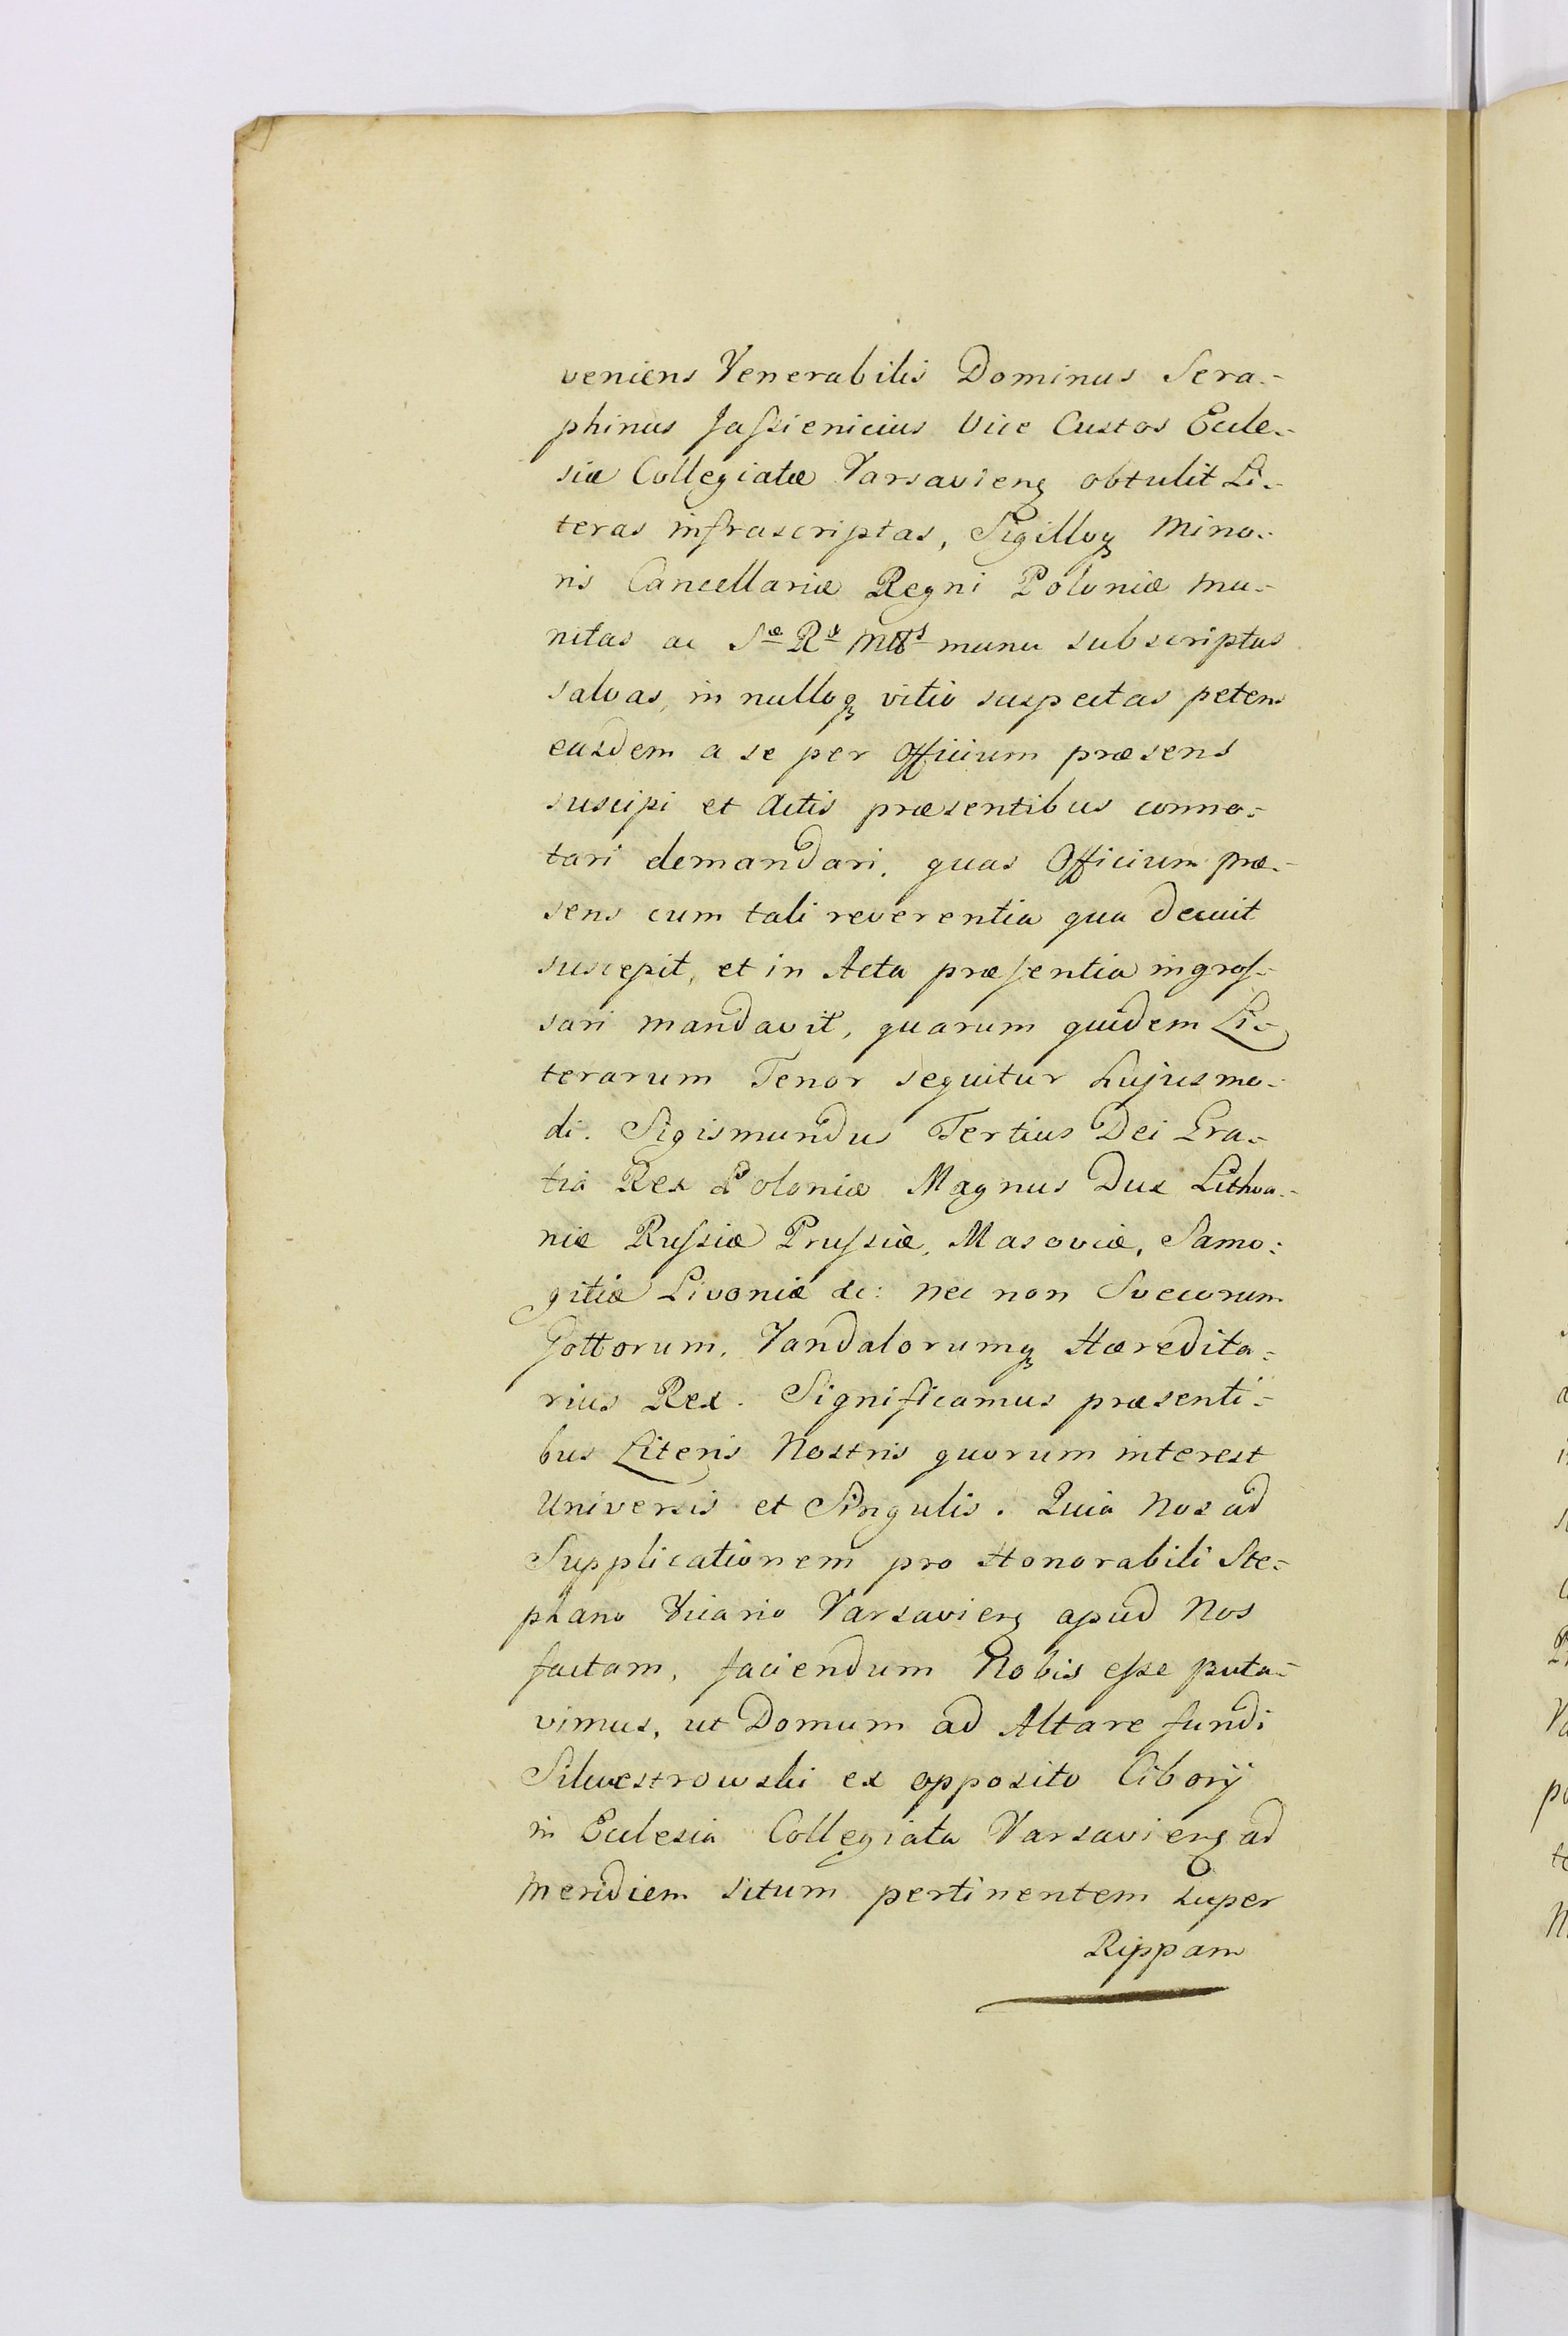 veniens Venerabilis Dominus Sera-
phinus Jaſsienicius Vice Custos Eccle-
siæ Collegiatæ Varsavienꝭ obtulit Li-
teras infrascriptas, Sigilloqꝫ Mino-
ris Cancellariæ Regni Poloniæ mu-
nitas ac Sæ Ræ Mttˢ manu subscriptas
salvas, in nulloqꝫ vitio suspectas petens
easdem a se per Officium præsens
suscipi et Actis præsentibus conno-
tari demandari. quas Officium præ-
sens cum tali reverentia qua decuit
suscepit, et in Acta præſentia ingroſ-
sari mandavit, quarum quidem Li-
terarum Tenor sequitur hujusmo-
di. Sigismundus Tertius Dei Gra-
tia Rex Poloniæ Magnus Dux Lithva-
niæ Ruſsiæ Pruſsiæ, Masoviæ, Samo-
gitiæ Livoniæ &c: nec non Svecorum
Gottorum, Vandalorumqꝫ Hæredita-
rius Rex. Significamus præsenti-
bus Literis Nostris quorum interest
Universis et Singulis. Quia Nos ad
Supplicationem pro Honorabili Ste-
phano Vicario Varsavienꝭ apud Nos
factam, faciendum Nobis eſse puta-
vimus, ut Domum ad Altare fundi
Silvestrowski ex opposito Ciborij
in Ecclesia Collegiata Varsavienꝭ ad
Meridiem situm pertinentem super
Rippam